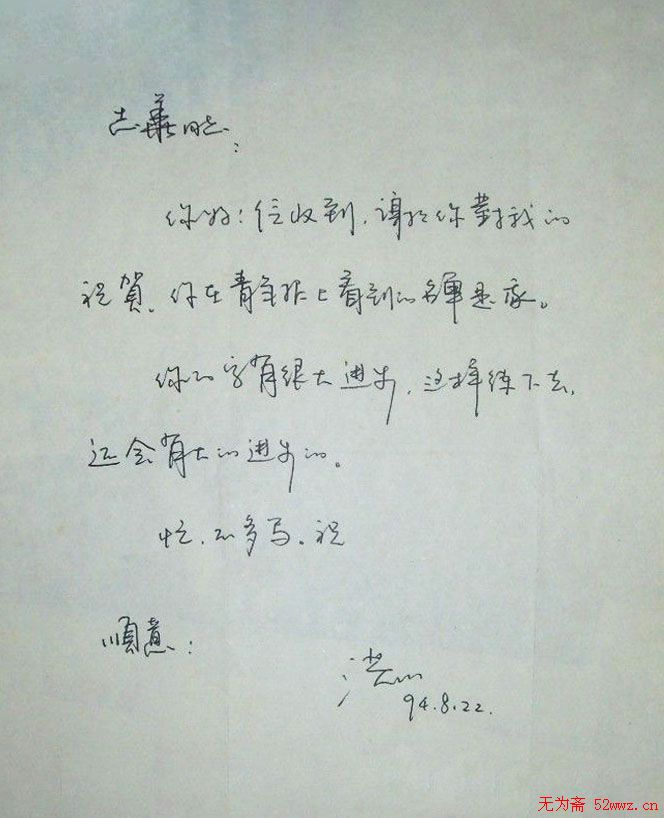 志華同志：
你好！信收到，謝谢你對我的
祝賀。你在青年报上看到的名單是我。
你的字有很大進步，这样练下去，
还会有大的進步的。
忙，不多写。祝
順意！
94.8.22.
无为斋 52wwz.cn